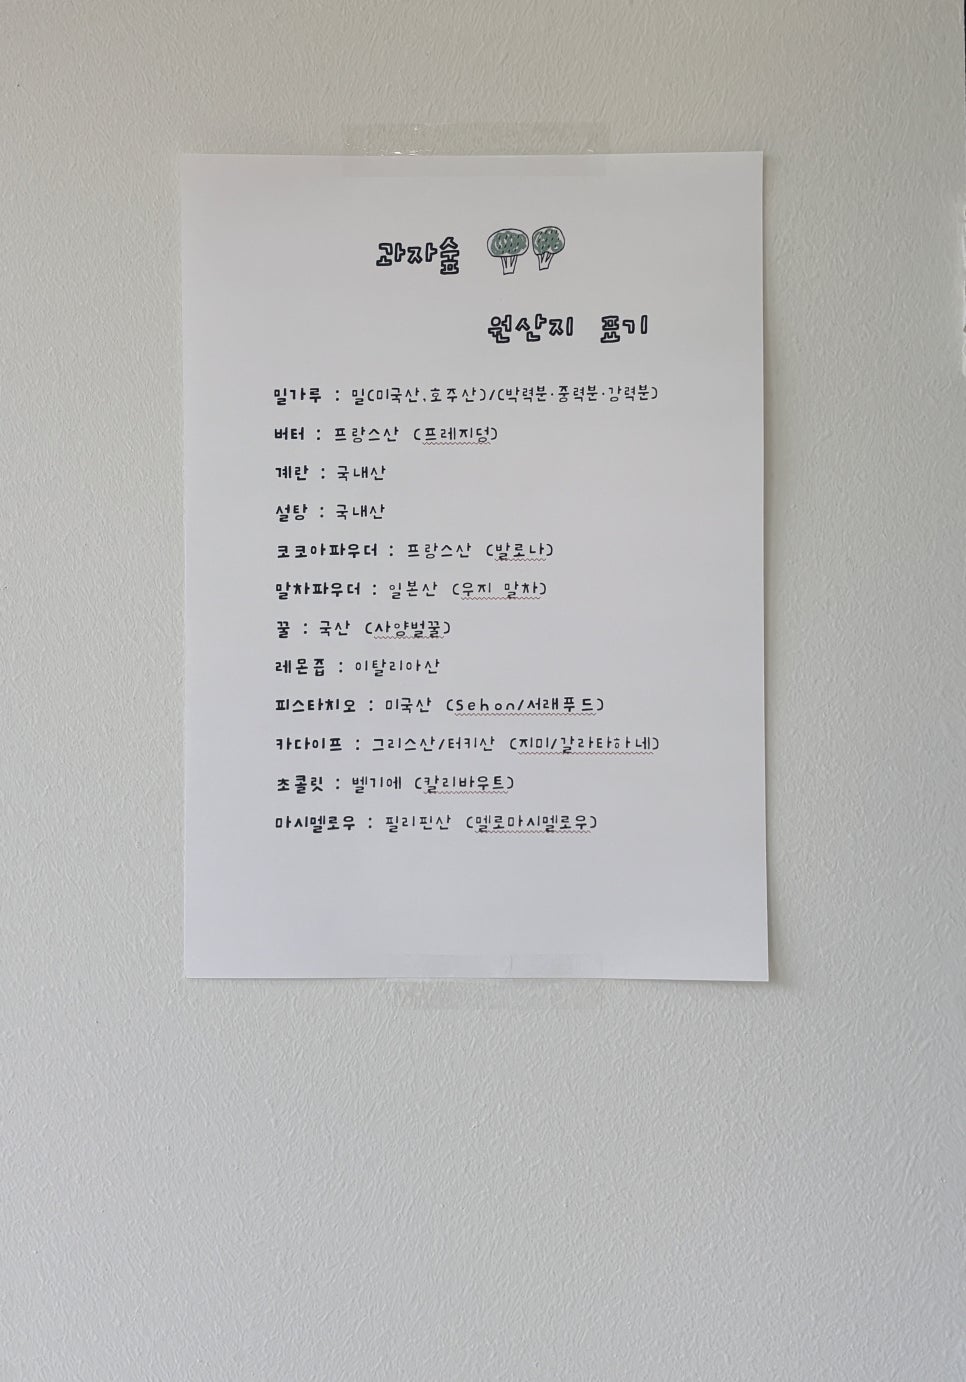 과자숲
원산지 표기
밀가루 : 밀(미국산,호주산)/(박력분·중력분·강력분)
버터 : 프랑스산 (프레지덩)
계란 : 국내산
설탕 : 국내산
코코아파우더 : 프랑스산 (발로나)
말차파우더 : 일본산 (우지 말차)
꿀 : 국산 (사양벌꿀)
레몬즙 : 이탈리아산
피스타치오 : 미국산 (Sehon/서래푸드)
카다이프 : 그리스산/터키산 (지미/갈라타하네)
초콜릿 : 벨기에 (칼리바우트)
마시멜로우 : 필리핀산 (멜로마시멜로우)